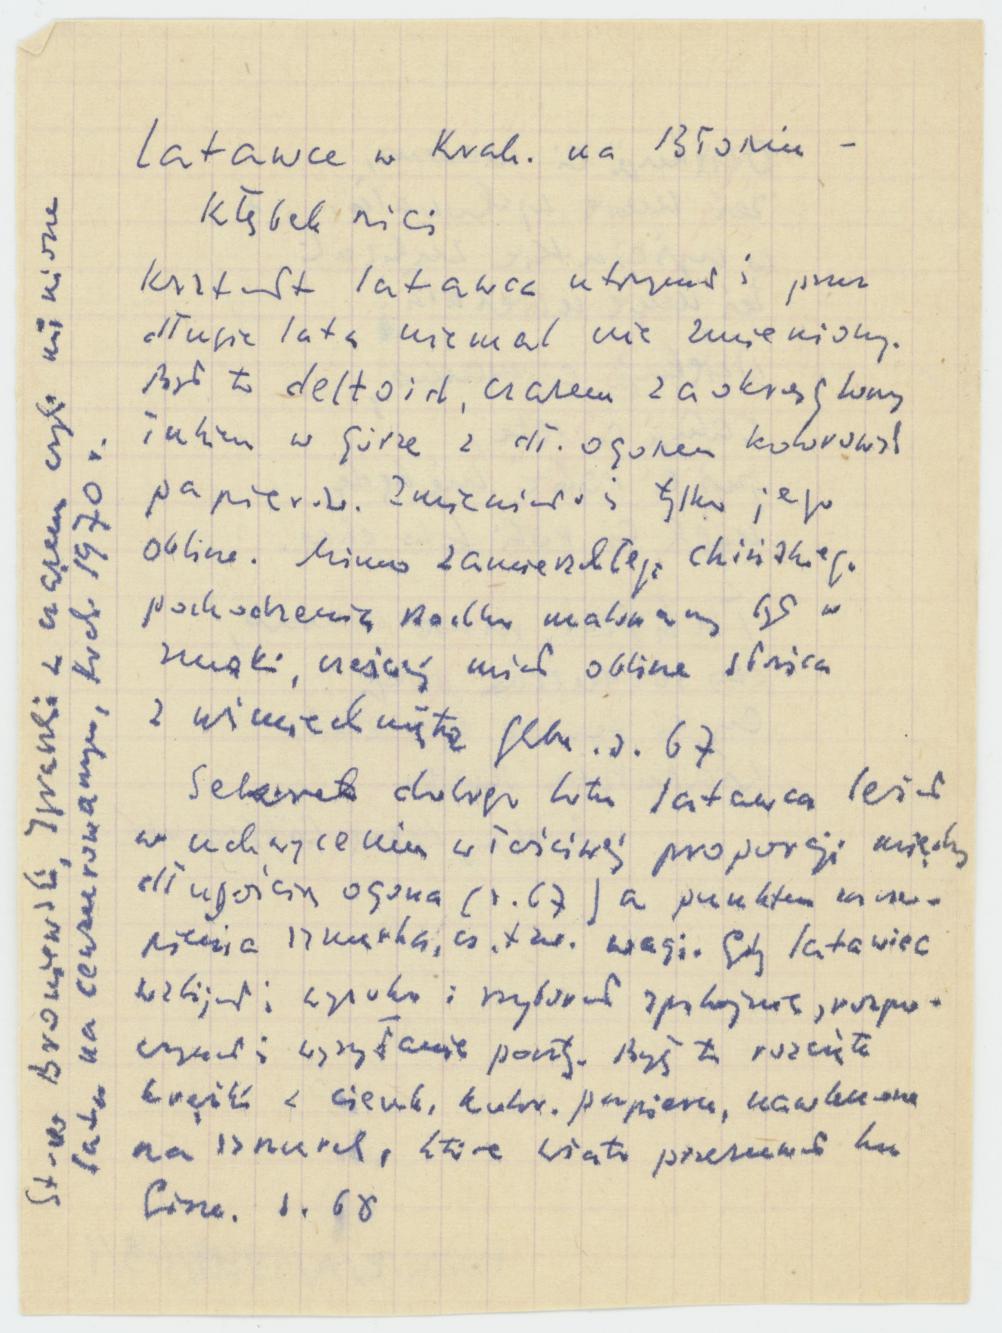 Latawce w Krak. na Błoniu -
Kłębek nici
Kształt latawca utrzymał się przez
długie lata niemal nie zmieniony.
Był to deltoid, czasem zaokrąglony
łukiem w górze z dł. ogonem kolorowych
papierów. Zmieniało się tylko jego
oblicze. Mimo zamierzchłego chińskiego
pochodzenia rzadko malowany był w
smoki, częściej miał oblicze słońca
z uśmiechniętą gębą. s. 67
Sekret dobrego lotu latawca leżał
w uchwyceniu właściwej proporcji między
długością ogona (s. 67) a punktem ucze-
pienia sznurka, tzw. wagi. Gdy latawiec
wzbijał się wysoko i szybował spokojnie, rozpo-
czynało się wysyłanie poczty. Były to rozcięte
krążki z cienk. kolor. papieru, nawleczone
na sznurek, które wiatr przesuwał ku
górze. s. 68
Stefan Broniewski, Igraszki z czasem czyli minione
lata na cenzurowanym, Krak. 1970 r.